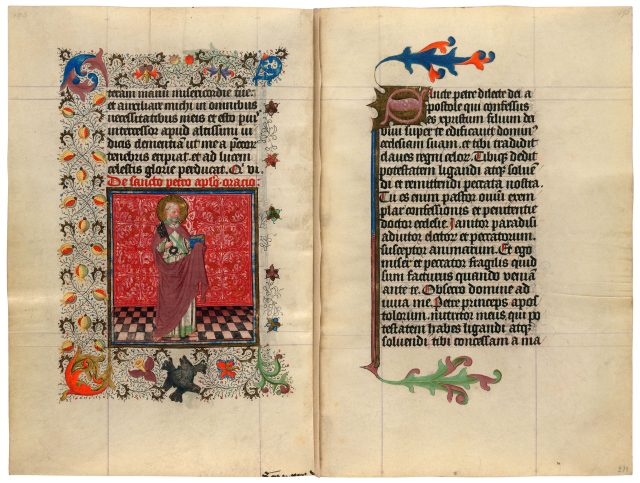 teram manu misericordie tue
et auxiliare michi in omnibus
necessitatibus meis et esto pius
intercessor apud altissimi iu
dicis clementiam ut me a peccatorum
tenebris eripiat et ad lucem
celestis glorie perducat. Qui
De sancto petro apostolo oratio.
Sancte petre dilecte dei a
postole qui confessus
es christum filium di
vini super te edificavit dominus
ecclesiam suam. et tibi tradidit
claves regni celor. Tibique dedit
potestatem ligandi atque solue
di et remittendi peccata nostra.
Tu es enim pastor ovium exem
plar confessionis et penitentie
doctor ecclesie. Janitor paradisi
adiutor electorum et peccatorum.
susceptor animarum. Et ego
miser et peccator fragilis quid
sum facturus quando veniam
ante te. Obsecro domine ad
iuva me. Petre princeps apos
tolorum. miserere meis qui po
testatem habes ligandi atque
solvendi tibi concessam a ma